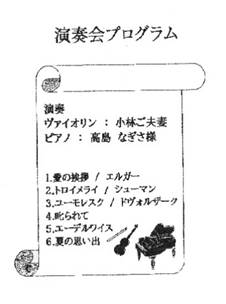 演奏会プログラム
演奏
ヴァイオリン : 小林ご夫妻
ピアノ : 高島 なぎさ様
1.愛の挨拶 / エルガー
2.トロイメライ / シューマン
3.ユーモレスク / ドヴォルザーク
4.叱られて
5.エーデルワイス
6.夏の思い出